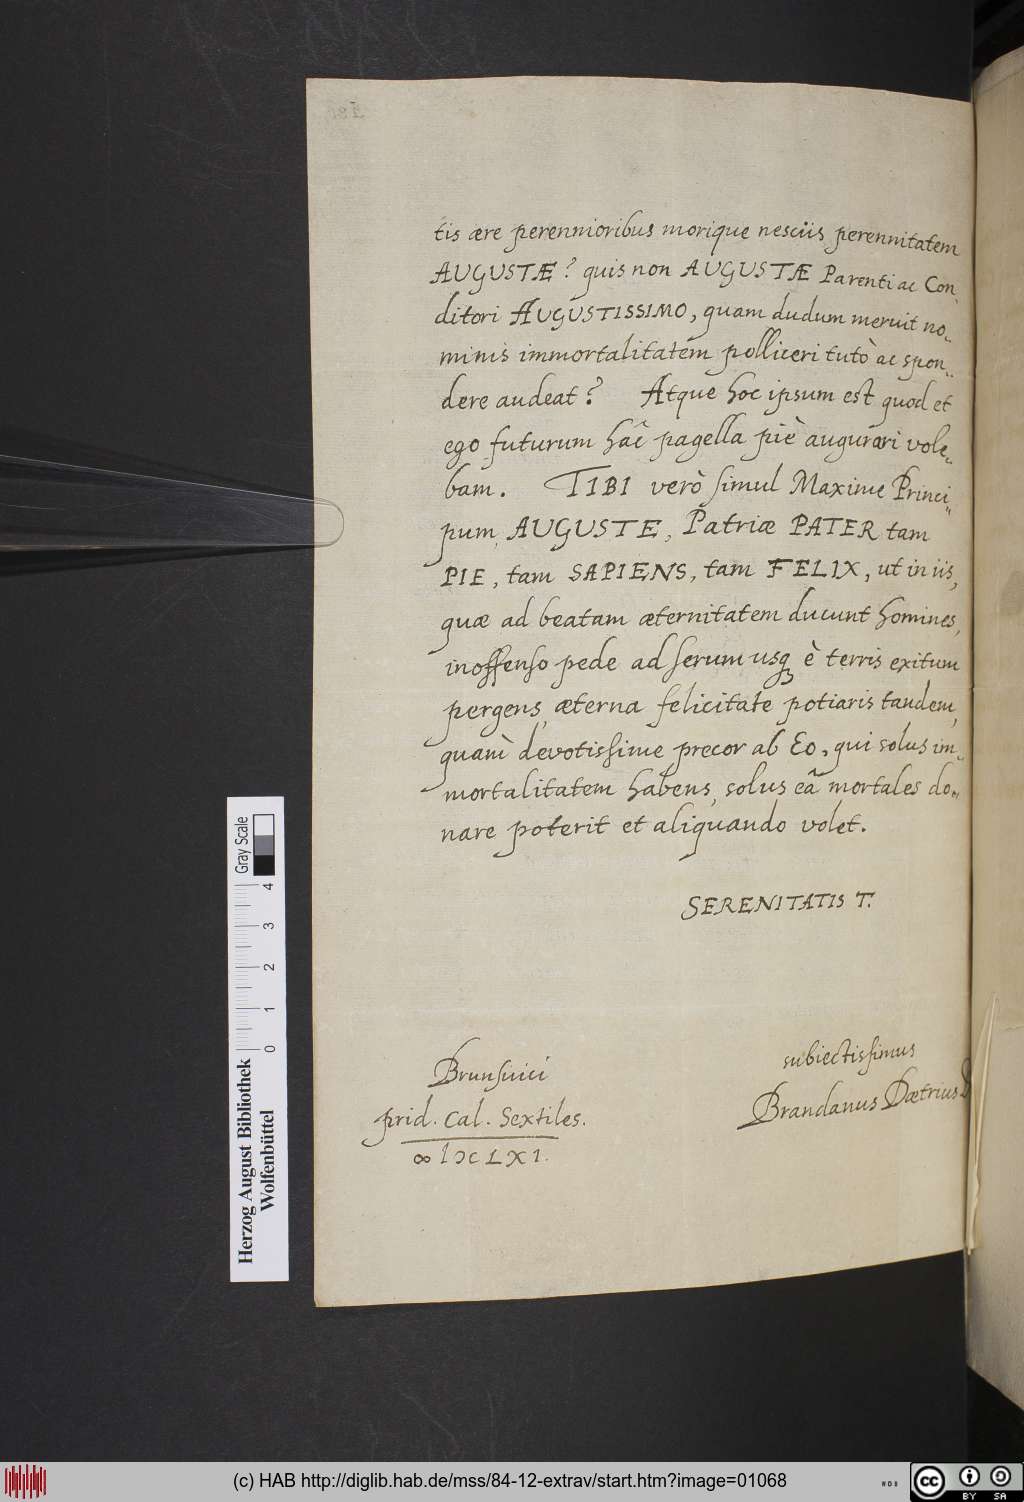 tis ære perennioribus morique nesciis perennitatem
AUGUSTÆ? quis non AUGUSTÆ Parenti ac Con-
ditori AUGUSTISSIMO, quam dudum meruit no-
minis immortalitatem polliceri tutò ac spon-
dere audeat? Atque hoc ipsum est quod et
ego futurum hâc pagella piè augurari vole-
bam. TIBI verò simul Maxime Princi-
pum, AUGUSTE, Patriæ PATER tam
PIE, tam SAPIENS, tam FELIX, ut in iis,
quæ ad beatam æternitatem ducunt homines,
inoffenso pede ad serum usq₃ è terris exitum
pergens, æterna felicitate potiaris tandem,
quam devotissime precor ab Eo, qui solus im-
mortalitatem habens, solus eã mortales do-
nare poterit et aliquando volet.
SERENITATIS T.
subiectissimus
Brandanus Dætrius
Brunsuici
prid. Cal. Sextiles.
∞ IↃC LXI.
Gray Scale
0 1 2 3 4
Herzog August Bibliothek
Wolfenbüttel
(c) HAB http://diglib.hab.de/mss/84-12-extrav/start.htm?image=01068
WDB
cc BY SA